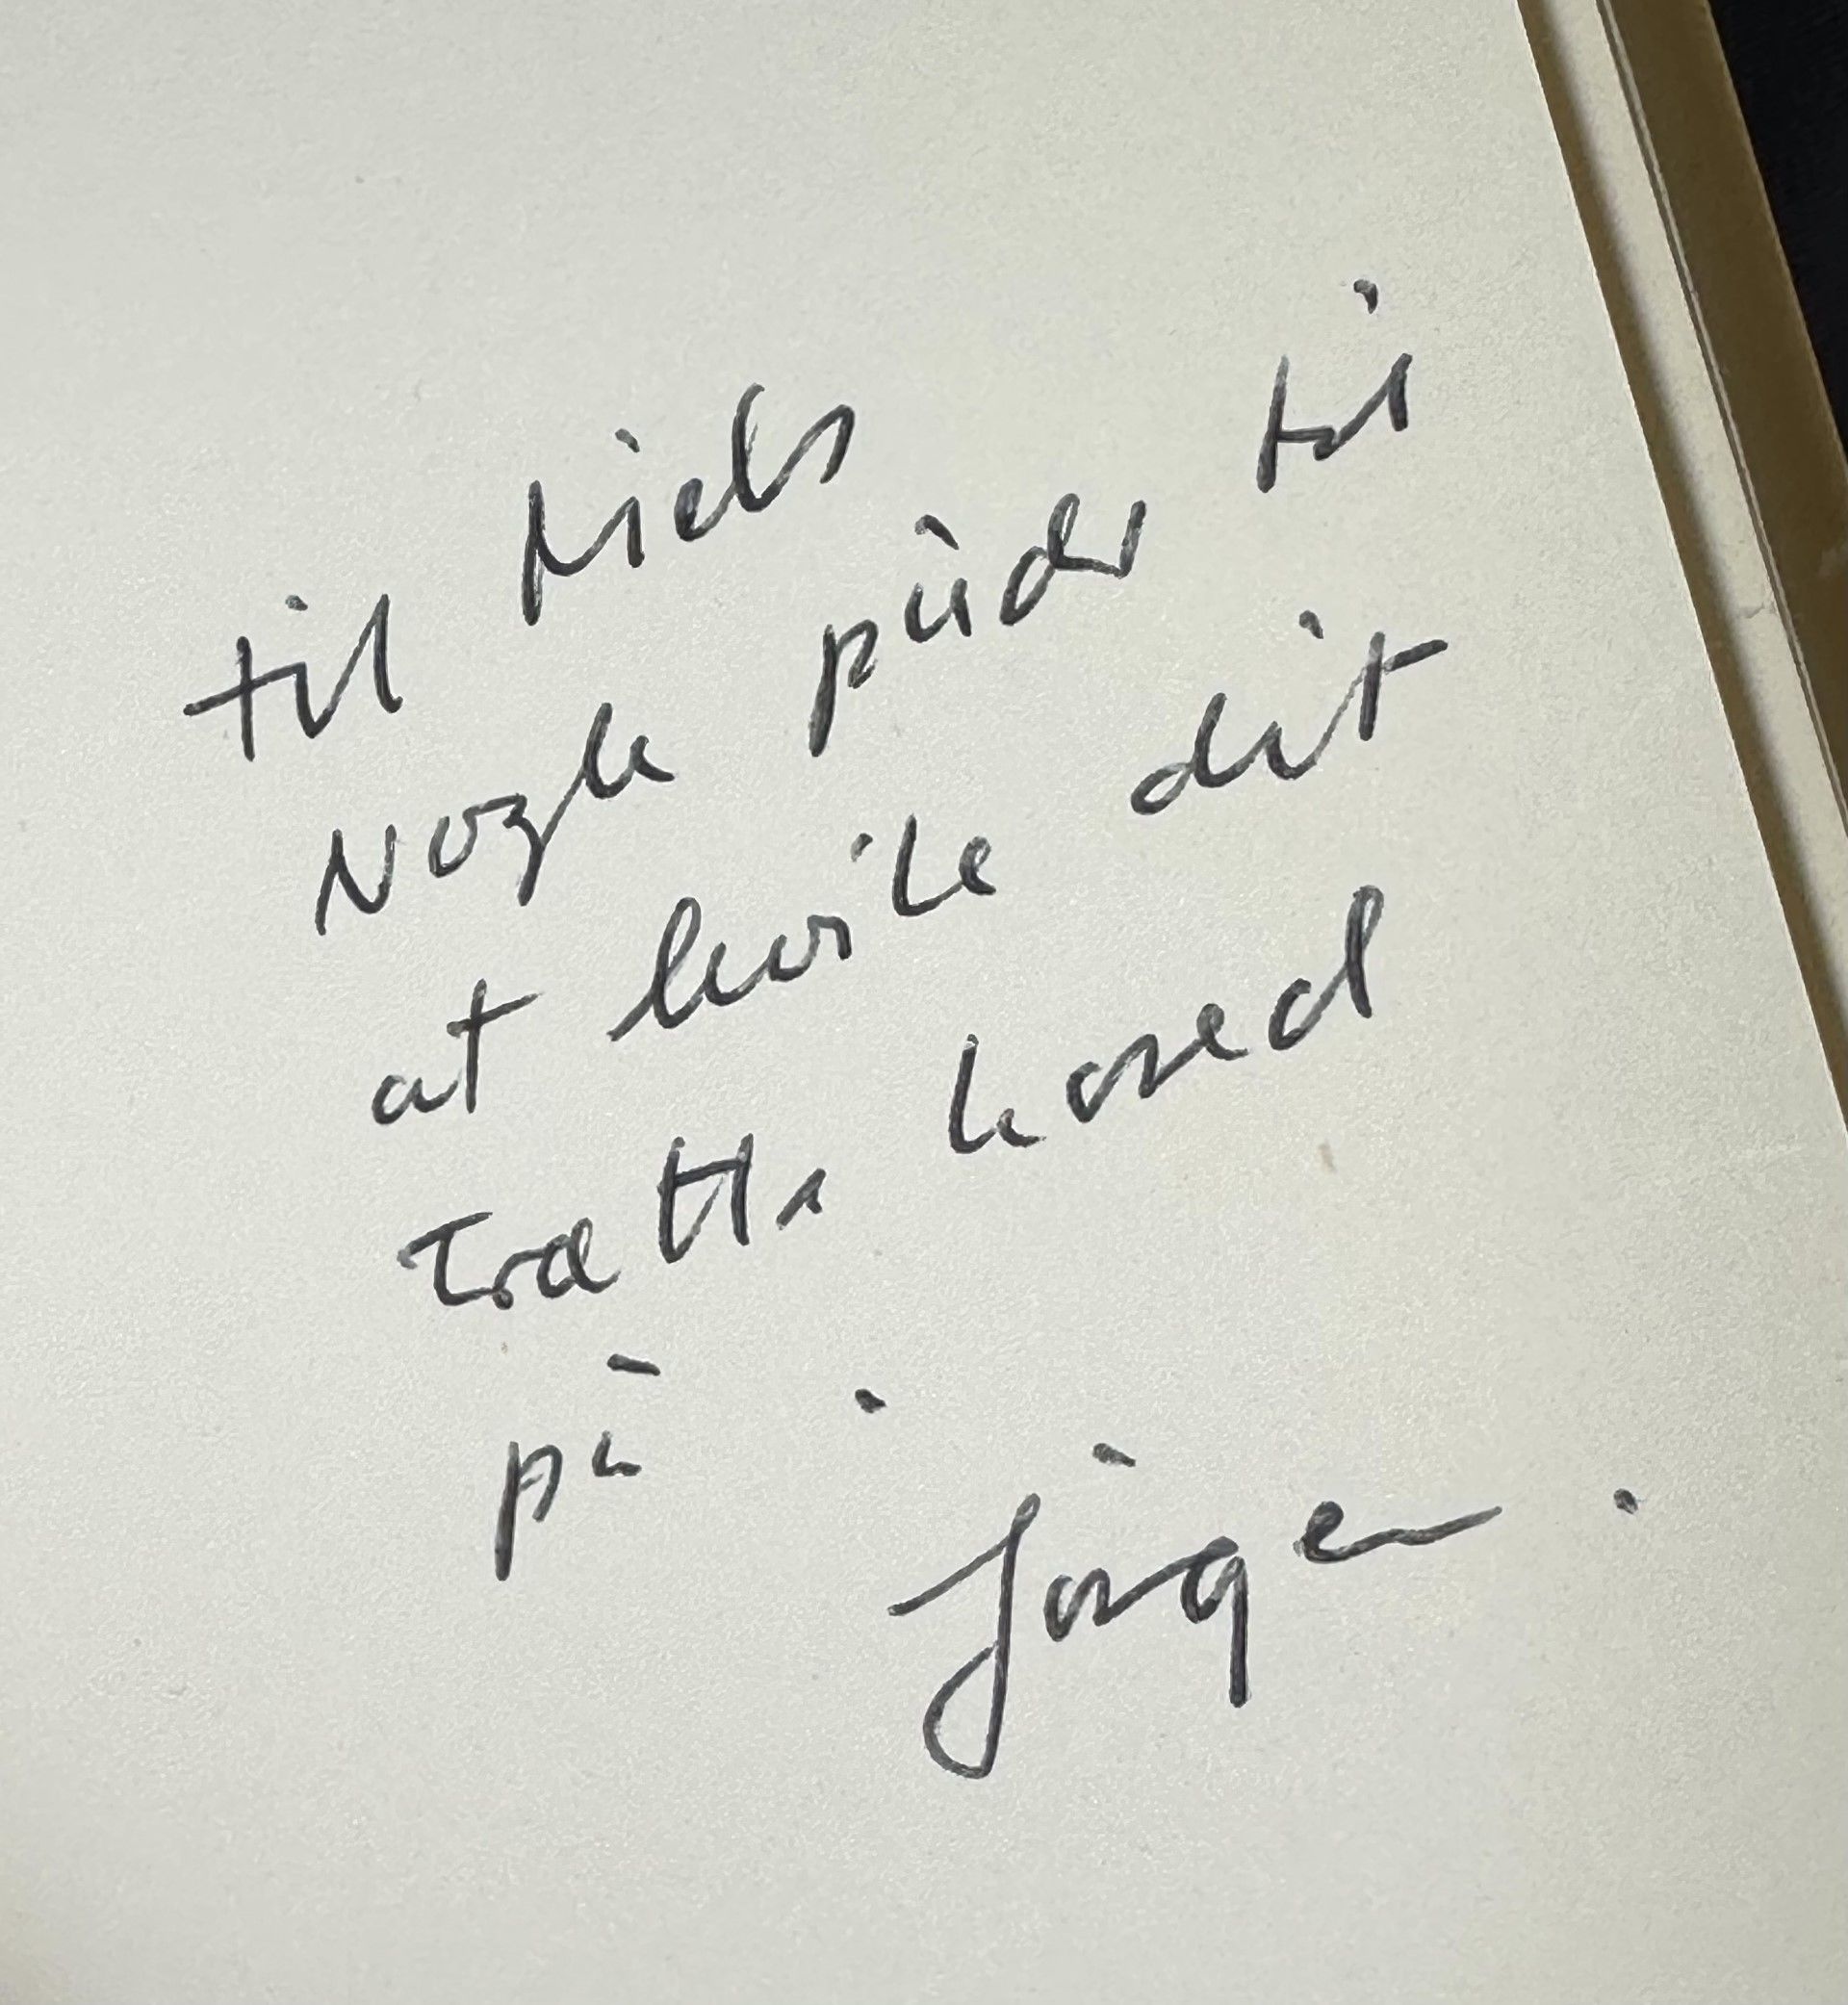 til Niels
Nogle puder til
at hvile dit
trætte hoved
på.
Jörgen.